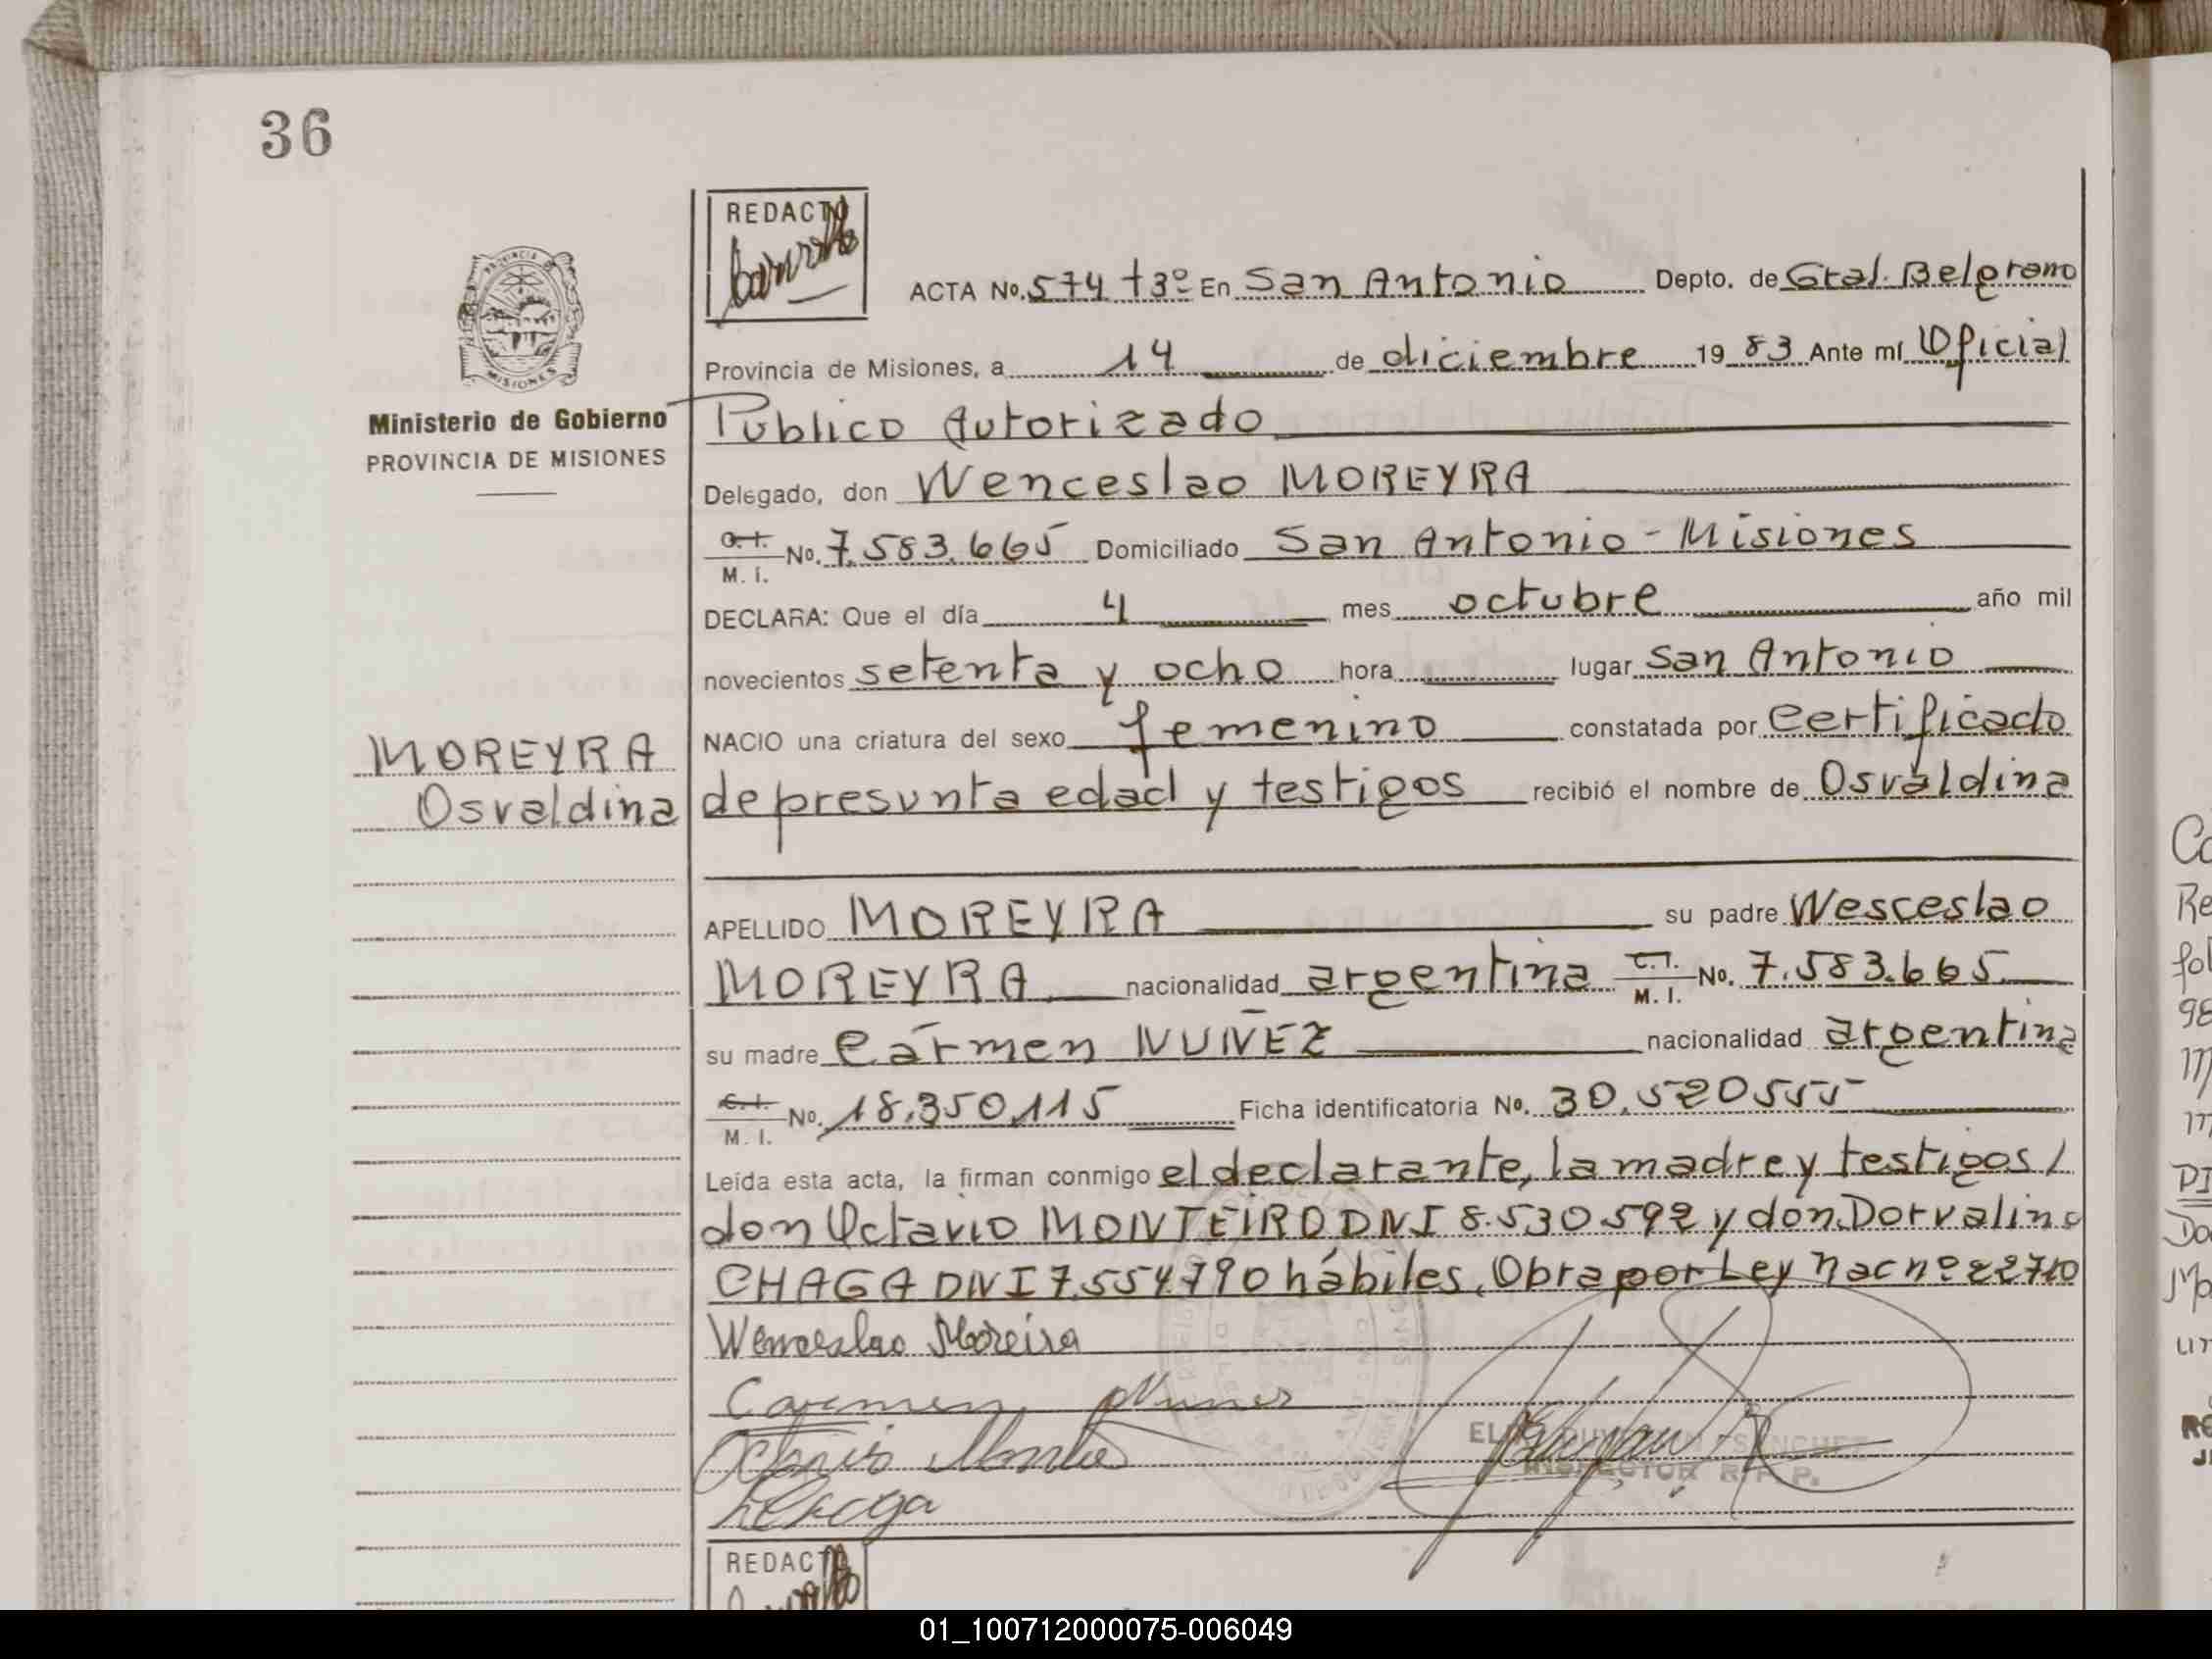 36
REDACTO
ACTA No. 574 T3º En San Antonio Depto. de Gral. Belgrano
Provincia de Misiones, a 14 de diciembre 1983 Ante mí Oficial
Ministerio de Gobierno
PROVINCIA DE MISIONES
Público Autorizado
Delegado, don Wenceslao MOREYRA
C. I. No. 7.583.665 Domiciliado San Antonio - Misiones
M. I.
DECLARA: Que el día 4 mes octubre año mil
novecientos setenta y ocho hora lugar San Antonio
NACIO una criatura del sexo femenino constatada por certificado
MOREYRA
Osvaldina
de presunta edad y testigos recibió el nombre de Osvaldina
APELLIDO MOREYRA su padre Wesceslao
MOREYRA nacionalidad argentina C. I. No. 7.583.665
M. I.
su madre Cármen NUÑEZ nacionalidad argentina
C. I. No. 18.350.115 Ficha identificatoria No. 30.520555
M. I.
Leída esta acta, la firman conmigo el declarante, la madre y testigos /
don Octavio MONTEIRO DNI 8.530.592 y don Dorvalino
CHAGA DNI 7.554.790 hábiles. Obra por Ley Nac nº 22710
Wenceslao Moreira
Carmen Nunes
Octavio
INSPECTOR R. P. P.
REDACTO
01_100712000075-006049